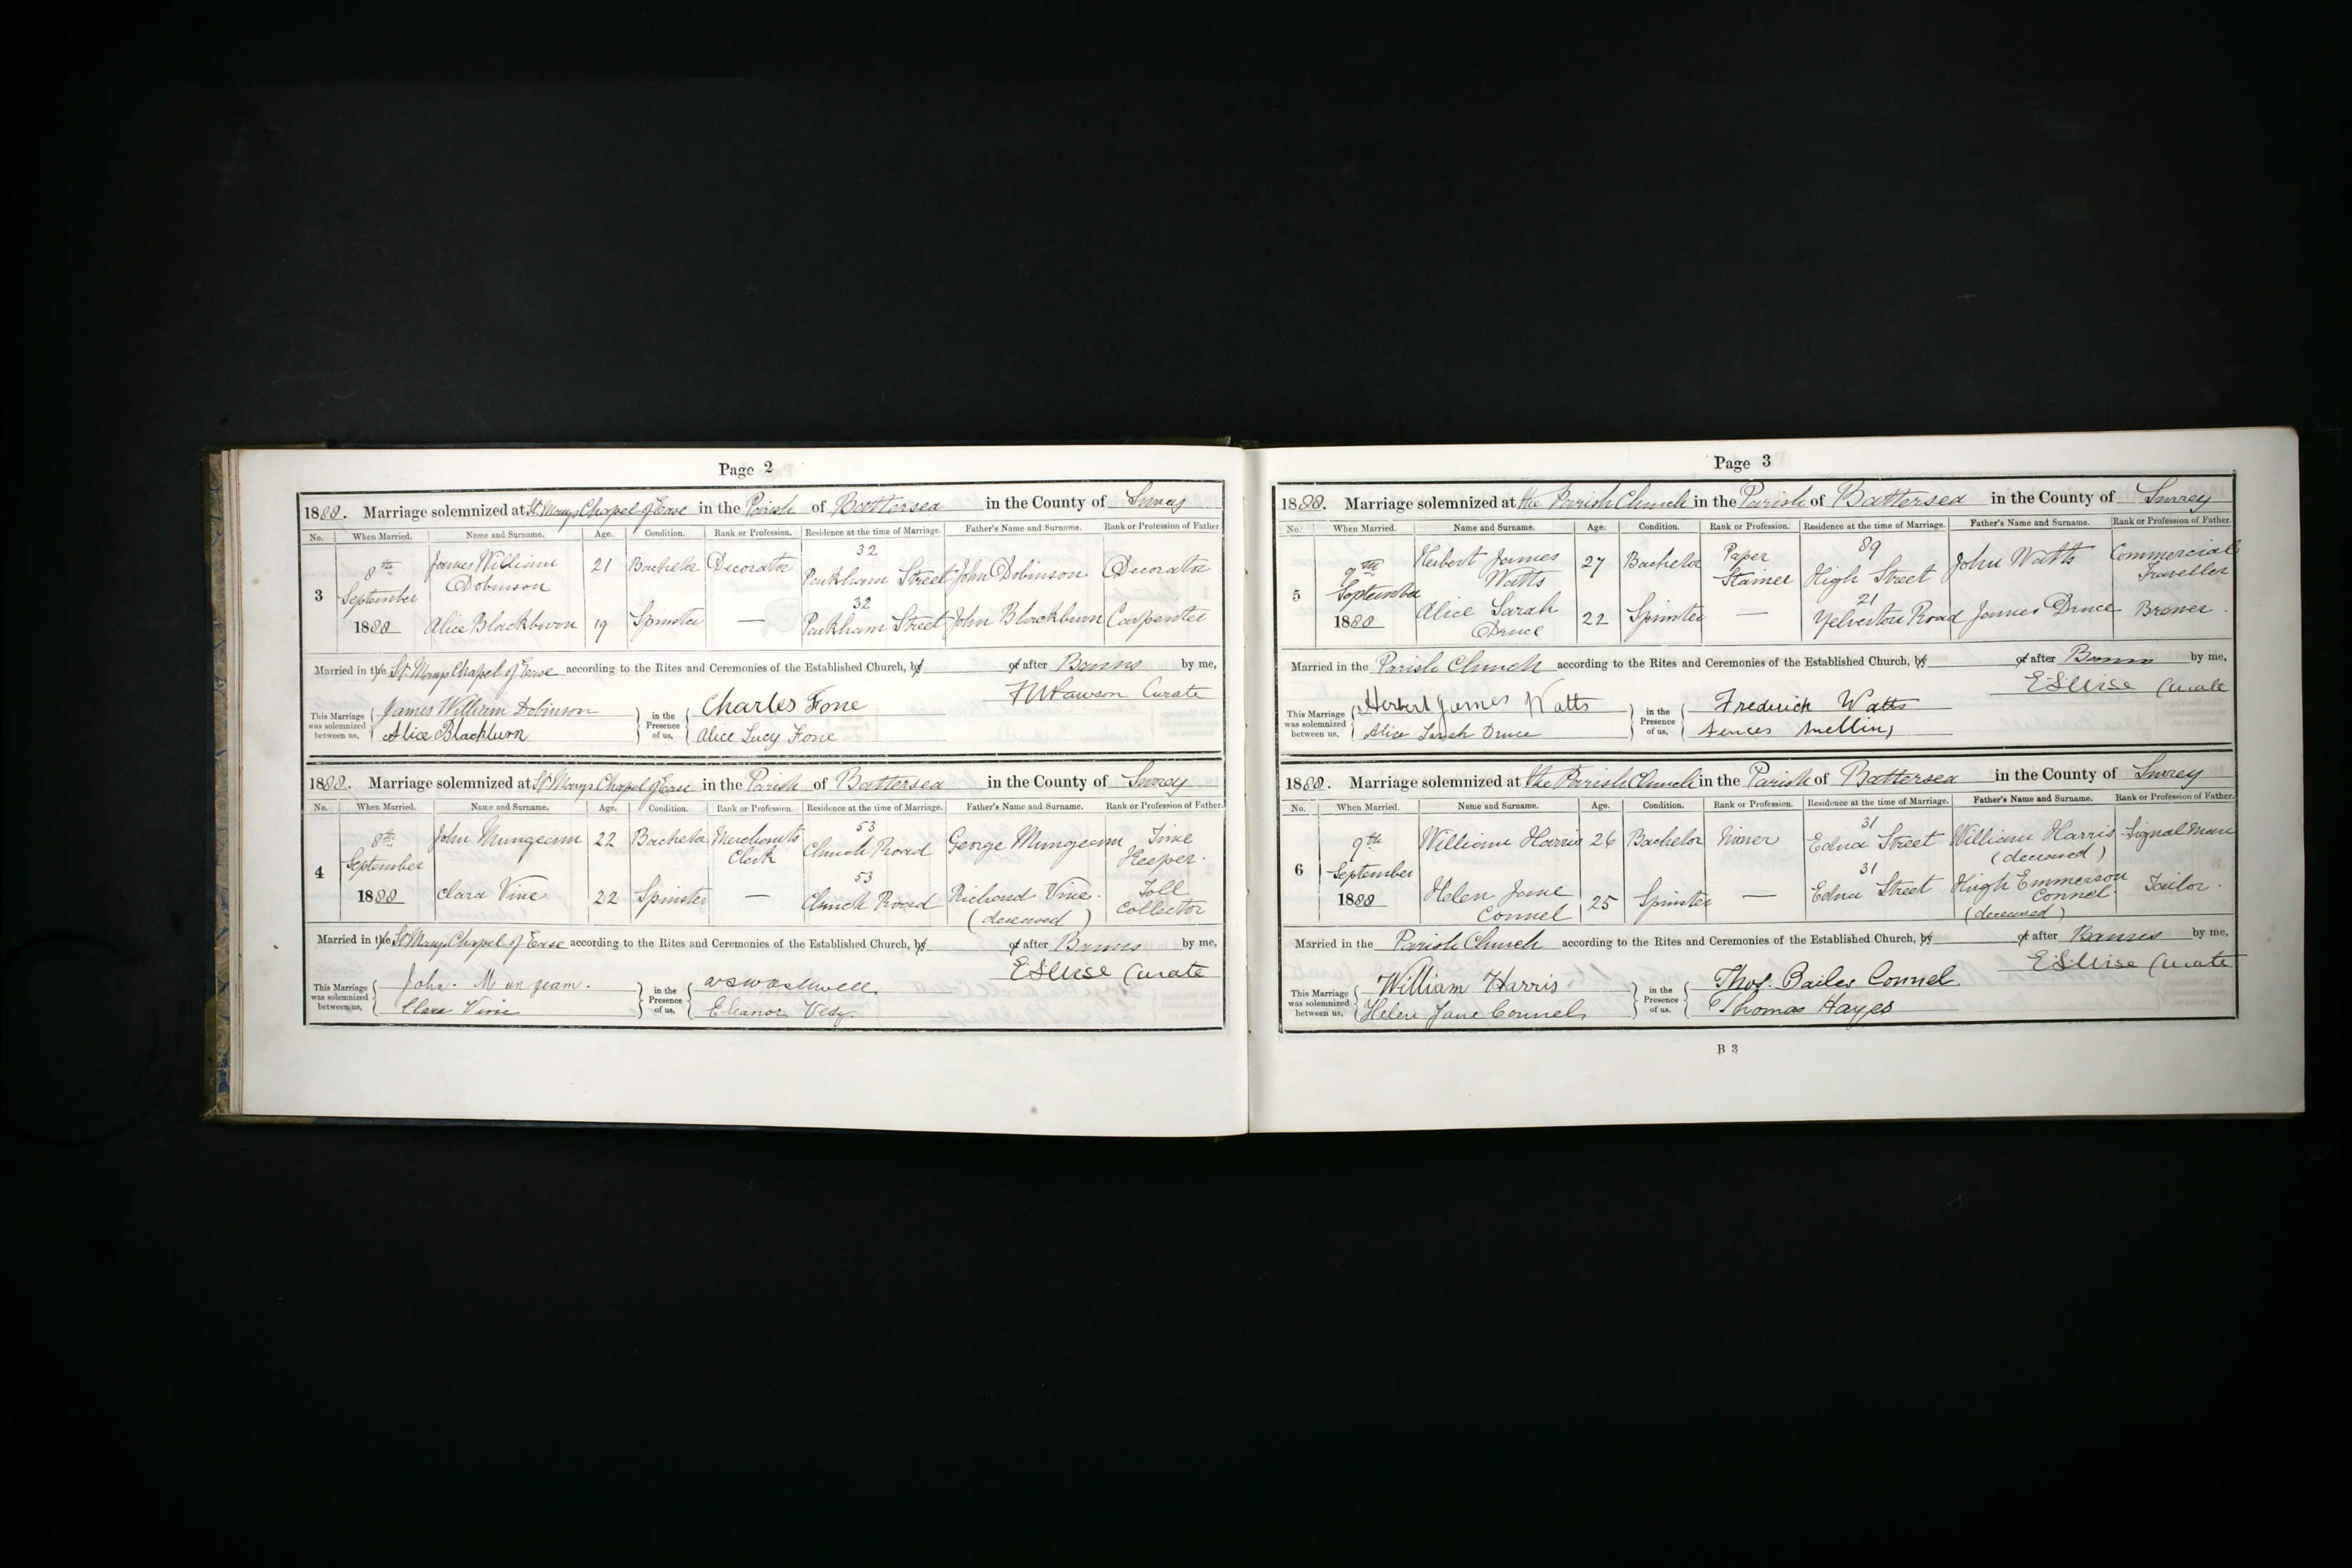 Page 2
1888. Marriage solemnized at St. Marys Chapel of Ease in the Parish of Battersea in the County of Surrey
No. When Married. Name and Surname. Age. Condition. Rank or Profession. Residence at the time of Marriage. Father's Name and Surname. Rank or Profession of Father
3 8th September 1888 James William Dobinson 21 Bachelor Decorator 32 Parkham Street John Dobinson Decorator
Alice Blackburn 19 Spinster — 32 Parkham Street John Blackburn Carpenter
Married in the St. Marys Chapel of Ease according to the Rites and Ceremonies of the Established Church, by or after Banns by me,
Lawson Curate
This Marriage was solemnized between us, James William Dobinson Alice Blackburn in the Presence of us, Charles Fone Alice Lucy Fone
1888. Marriage solemnized at St. Marys Chapel of Ease in the Parish of Battersea in the County of Surrey
No. When Married. Name and Surname. Age. Condition. Rank or Profession. Residence at the time of Marriage. Father's Name and Surname. Rank or Profession of Father.
4 8th September 1888 John Mungeam 22 Bachelor Merchants Clerk 53 Church Road George Mungeam Time Keeper.
Clara Vine 22 Spinster — 53 Church Road Richard Vine. (deceased) Toll Collector
Married in the St Marys Chapel of Ease according to the Rites and Ceremonies of the Established Church, by or after Banns by me,
E S Wise Curate
This Marriage was solemnized between us, John. Mungeam. Clara Vine in the Presence of us, Eleanor
Page 3
1888. Marriage solemnized at the Parish Church in the Parish of Battersea in the County of Surrey
No. When Married. Name and Surname. Age. Condition. Rank or Profession. Residence at the time of Marriage. Father's Name and Surname. Rank or Profession of Father.
5 9th September 1888 Herbert James Watts 27 Bachelor Paper Stainer 89 High Street John Watts Commercial Traveller
Alice Sarah Druce 22 Spinster — 21 Yelverton Road James Druce Brewer.
Married in the Parish Church according to the Rites and Ceremonies of the Established Church, by or after Banns by me,
E S Wise Curate
This Marriage was solemnized between us, Herbert James Watts Alice Sarah Druce in the Presence of us, Frederick Watts
1888. Marriage solemnized at the Parish Church in the Parish of Battersea in the County of Surrey
No. When Married. Name and Surname. Age. Condition. Rank or Profession. Residence at the time of Marriage. Father's Name and Surname. Rank or Profession of Father.
6 9th September 1888 William Harris 26 Bachelor 31 Edna Street William Harris (deceased) Signal Man
Helen Jane Connel 25 Spinster — 31 Edna Street Hugh Emmerson Connel (deceased) Tailor.
Married in the Parish Church according to the Rites and Ceremonies of the Established Church, by or after Banns by me,
E S Wise Curate
This Marriage was solemnized between us, William Harris Helen Jane Connel in the Presence of us, Thos. Bailes Connel. Thomas Hayes
B 3